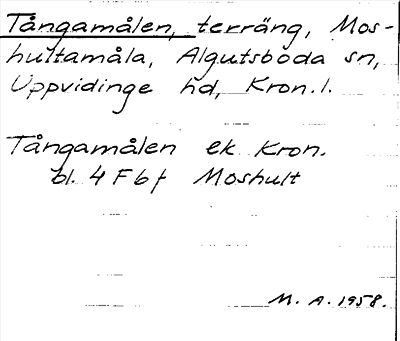 Tångamålen, terräng, Mos-
hultamåla, Algutsboda sn,
Uppvidinge hd, Kron. l.
Tångamålen ek. Kron.
bl. 4 F b f Moshult
M. A. 1958.